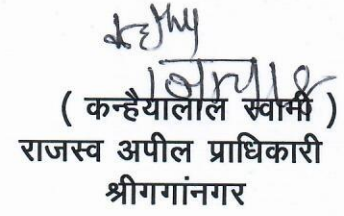 ( कन्हैयालाल स्वामी )
राजस्व अपील प्राधिकारी
श्रीगगांनगर